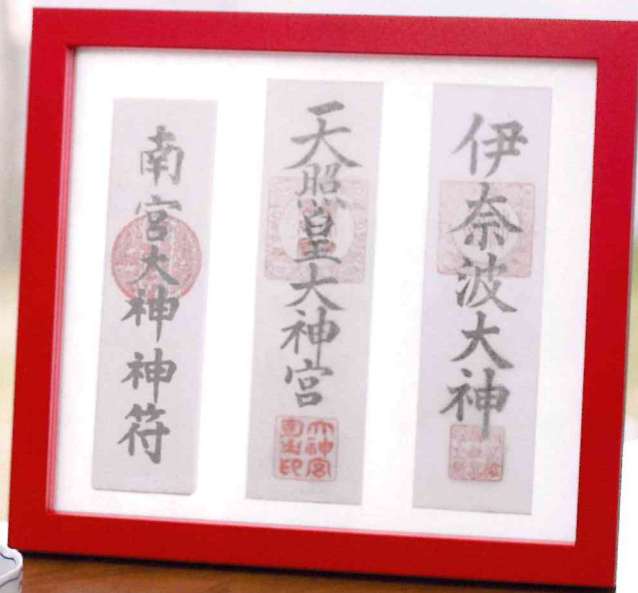 伊奈波大神
天照皇大神宮
南宮大神神符